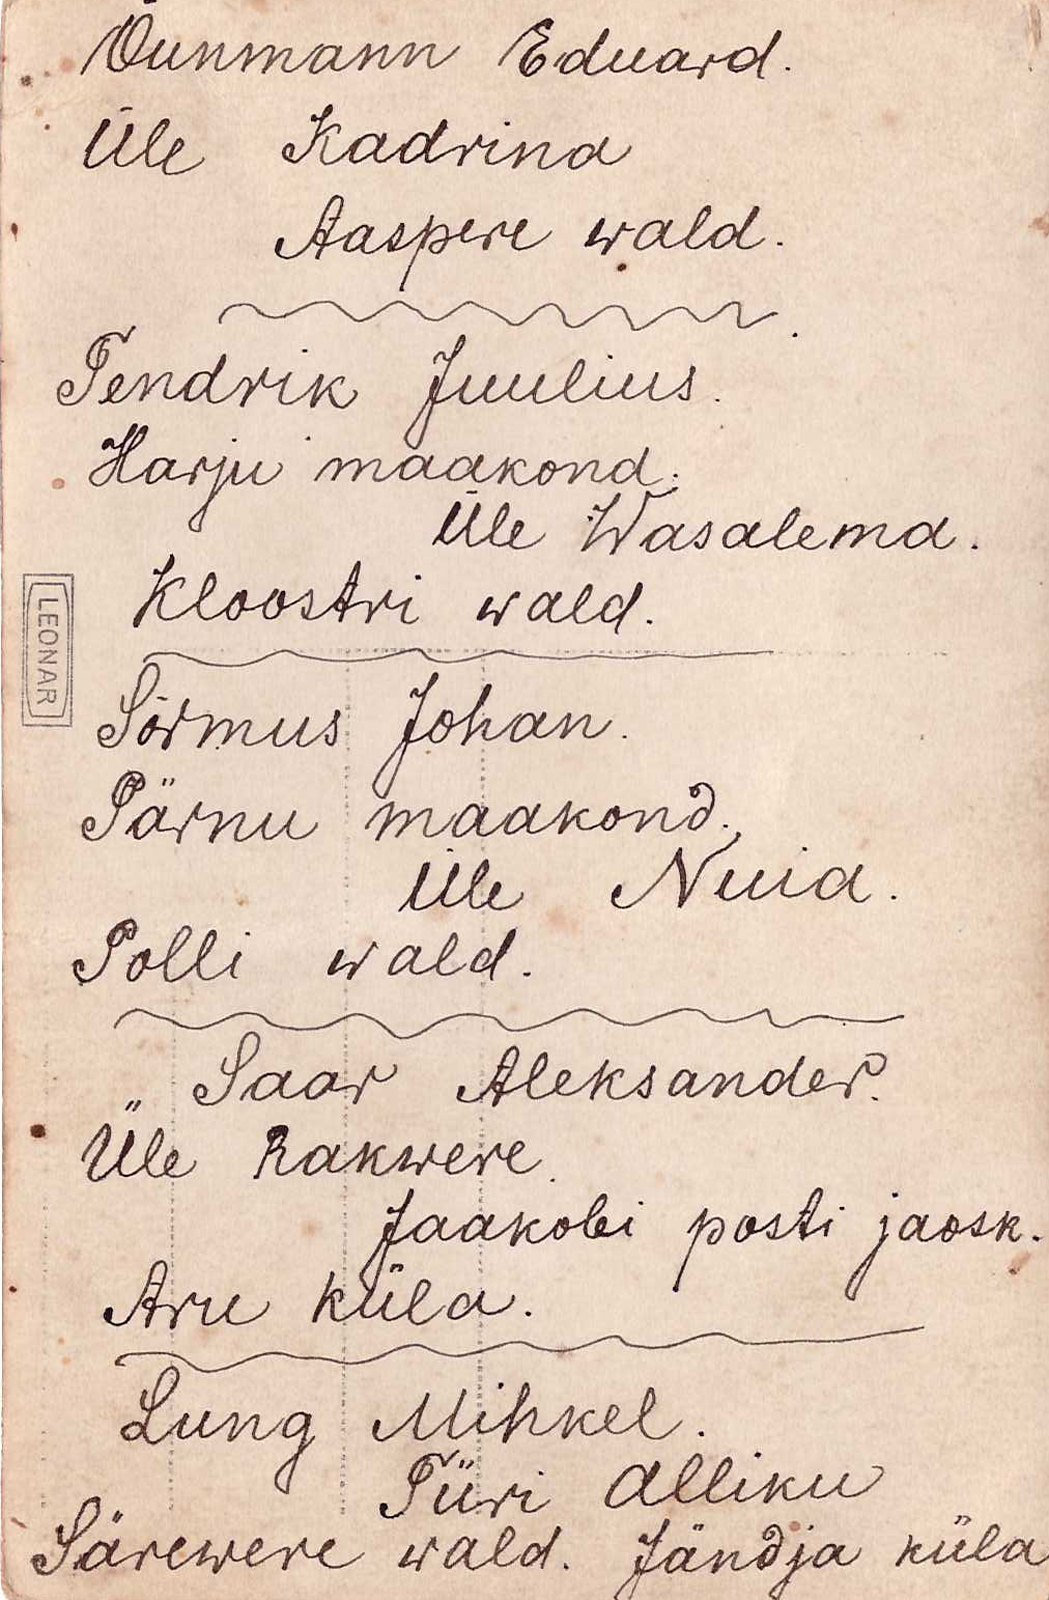 Õunmann Eduard.
Üle Kadrina
Aaspere wald.
Tendrik Juulius.
Harju maakond.
Üle Wasalema.
Kloostri wald.
LEONAR
Sõrmus Johan.
Pärnu maakond.
Üle Nuia.
Polli wald.
„ Saar Aleksander.
Üle Rakwere.
Jaakobi posti jaosk.
Aru küla.
Lung Mihkel.
Türi Alliku
Särewere wald. Jändja küla